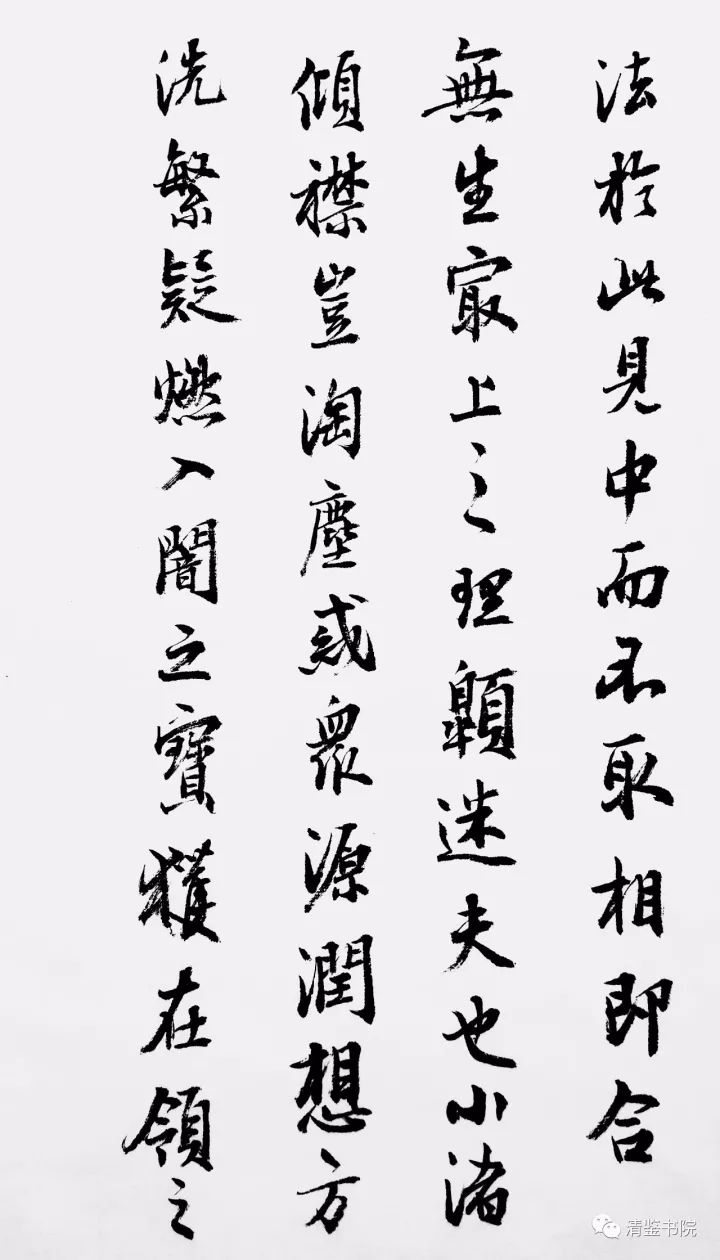 法於此見中而不取相即合
無生寂上之理顯迷夫也小渚
傾襟豈淘塵惑衆源潤想方
洗繁疑燃入闇之寶獲在領之
清鉴书院